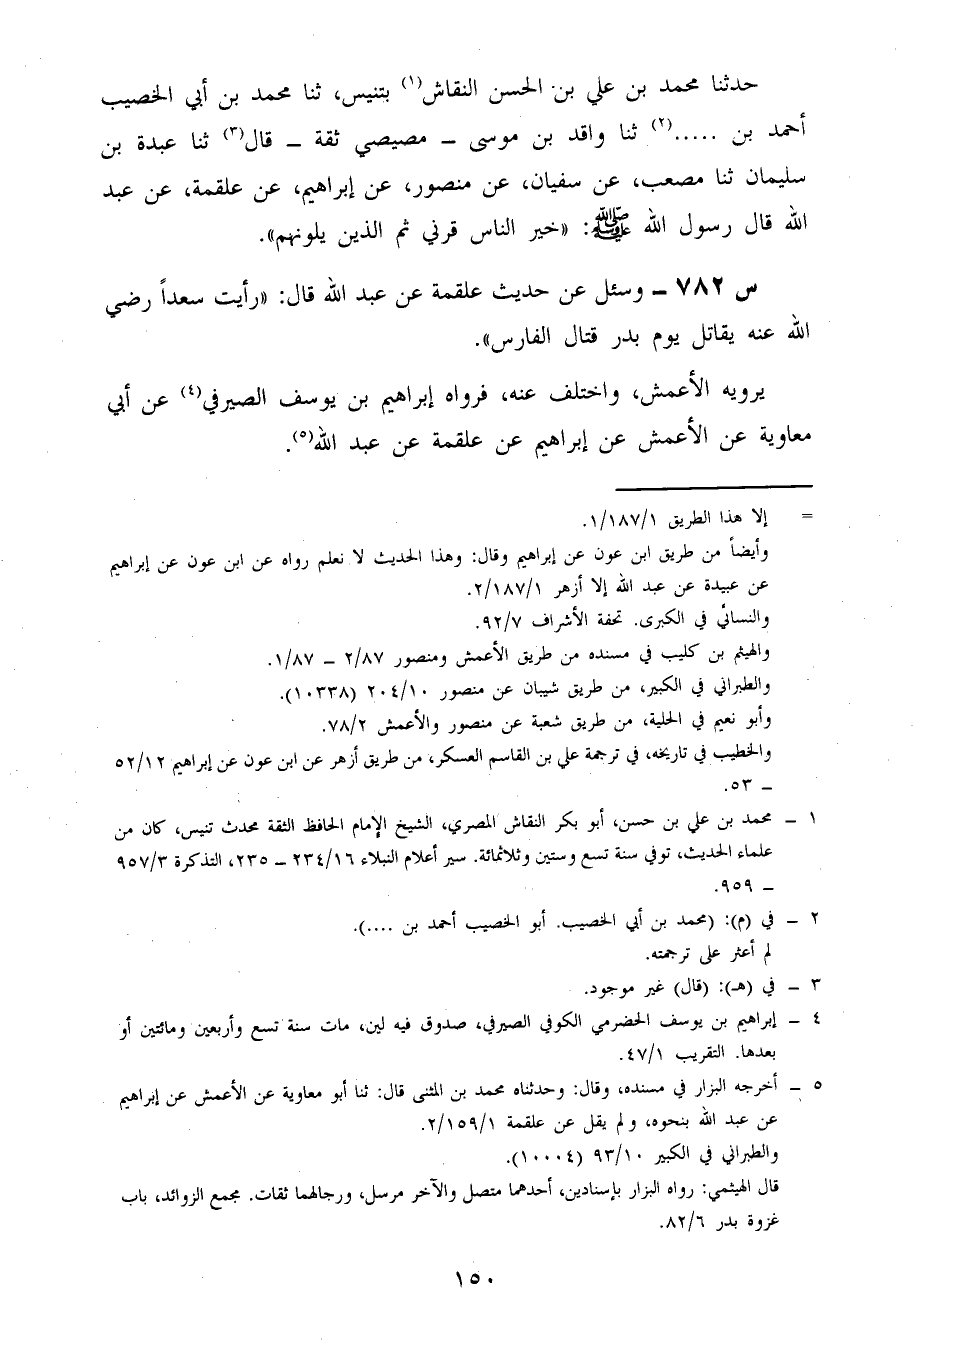 حدثنا محمد بن علي بن الحسن النقاش(١) بتنيس، ثنا محمد بن أبي الخصيب
أحمد بن .....(٢) ثنا واقد بن موسى ــ مصيصي ثقة ــ قال(٣) ثنا عبدة بن
سليمان ثنا مصعب، عن سفيان، عن منصور، عن إبراهيم، عن علقمة، عن عبد
الله قال رسول الله ﷺ: «خير الناس قرني ثم الذين يلونهم».
س ٧٨٢ ــ وسئل عن حديث علقمة عن عبد الله قال: «رأيت سعداً رضي
الله عنه يقاتل يوم بدر قتال الفارس».
يرويه الأعمش، واختلف عنه، فرواه إبراهيم بن يوسف الصيرفي(٤) عن أبي
معاوية عن الأعمش عن إبراهيم عن علقمة عن عبد الله(٥).
= إلا هذا الطريق ١/١٨٧/١.
وأيضاً من طريق ابن عون عن إبراهيم وقال: وهذا الحديث لا نعلم رواه عن ابن عون عن إبراهيم
عن عبيدة عن عبد الله إلا أزهر ٢/١٨٧/١.
والنسائي في الكبرى. تحفة الأشراف ٩٢/٧.
والهيثم بن كليب في مسنده من طريق الأعمش ومنصور ٢/٨٧ ــ ١/٨٧.
والطبراني في الكبير، من طريق شيبان عن منصور ٢٠٤/١٠ (١٠٣٣٨).
وأبو نعيم في الحلية، من طريق شعبة عن منصور والأعمش ٧٨/٢.
والخطيب في تاريخه، في ترجمة علي بن القاسم العسكر، من طريق أزهر عن ابن عون عن إبراهيم ٥٢/١٢
ــ ٥٣.
١ ــ محمد بن علي بن حسن، أبو بكر النقاش المصري، الشيخ الإمام الحافظ الثقة محدث تنيس، كان من
علماء الحديث، توفي سنة تسع وستين وثلاثمائة. سير أعلام النبلاء ٢٣٤/١٦ ــ ٢٣٥، التذكرة ٩٥٧/٣
ــ ٩٥٩.
٢ ــ في (م): (محمد بن أبي الخصيب. أبو الخصيب أحمد بن ....).
لم أعثر على ترجمته.
٣ ــ في (هـ): (قال) غير موجود.
٤ ــ إبراهيم بن يوسف الحضرمي الكوفي الصيرفي، صدوق فيه لين، مات سنة تسع وأربعين ومائتين أو
بعدها. التقريب ٤٧/١.
٥ ــ أخرجه البزار في مسنده، وقال: وحدثناه محمد بن المثنى قال: ثنا أبو معاوية عن الأعمش عن إبراهيم
عن عبد الله بنحوه، ولم يقل عن علقمة ٢/١٥٩/١.
والطبراني في الكبير ٩٣/١٠ (١٠٠٠٤).
قال الهيثمي: رواه البزار بإسنادين، أحدهما متصل والآخر مرسل، ورجالهما ثقات. مجمع الزوائد، باب
غزوة بدر ٨٢/٦.
١٥٠